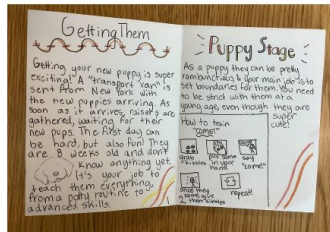 Getting Them
Getting your new puppy is super
exciting! A "transport van" is
sent from New York with
the new puppies arriving. As
soon as it arrives, raisers are
gathered, waiting for their
new pups. The first day can
be hard, but also fun! They
are 8 weeks old and don't
know anything yet.
It's your job to
teach them everything,
from a potty routine to
advanced skills.
Puppy Stage
As a puppy they can be pretty
rambunctious & your main job is to
set boundaries for them. You need
to be strict with them at a
young age, even though they are
super
cute!
How to train
"come!"
grab
kibbles
put some in
your
hand
say
"come"
once they
come give
2 them kibbles
repeat!